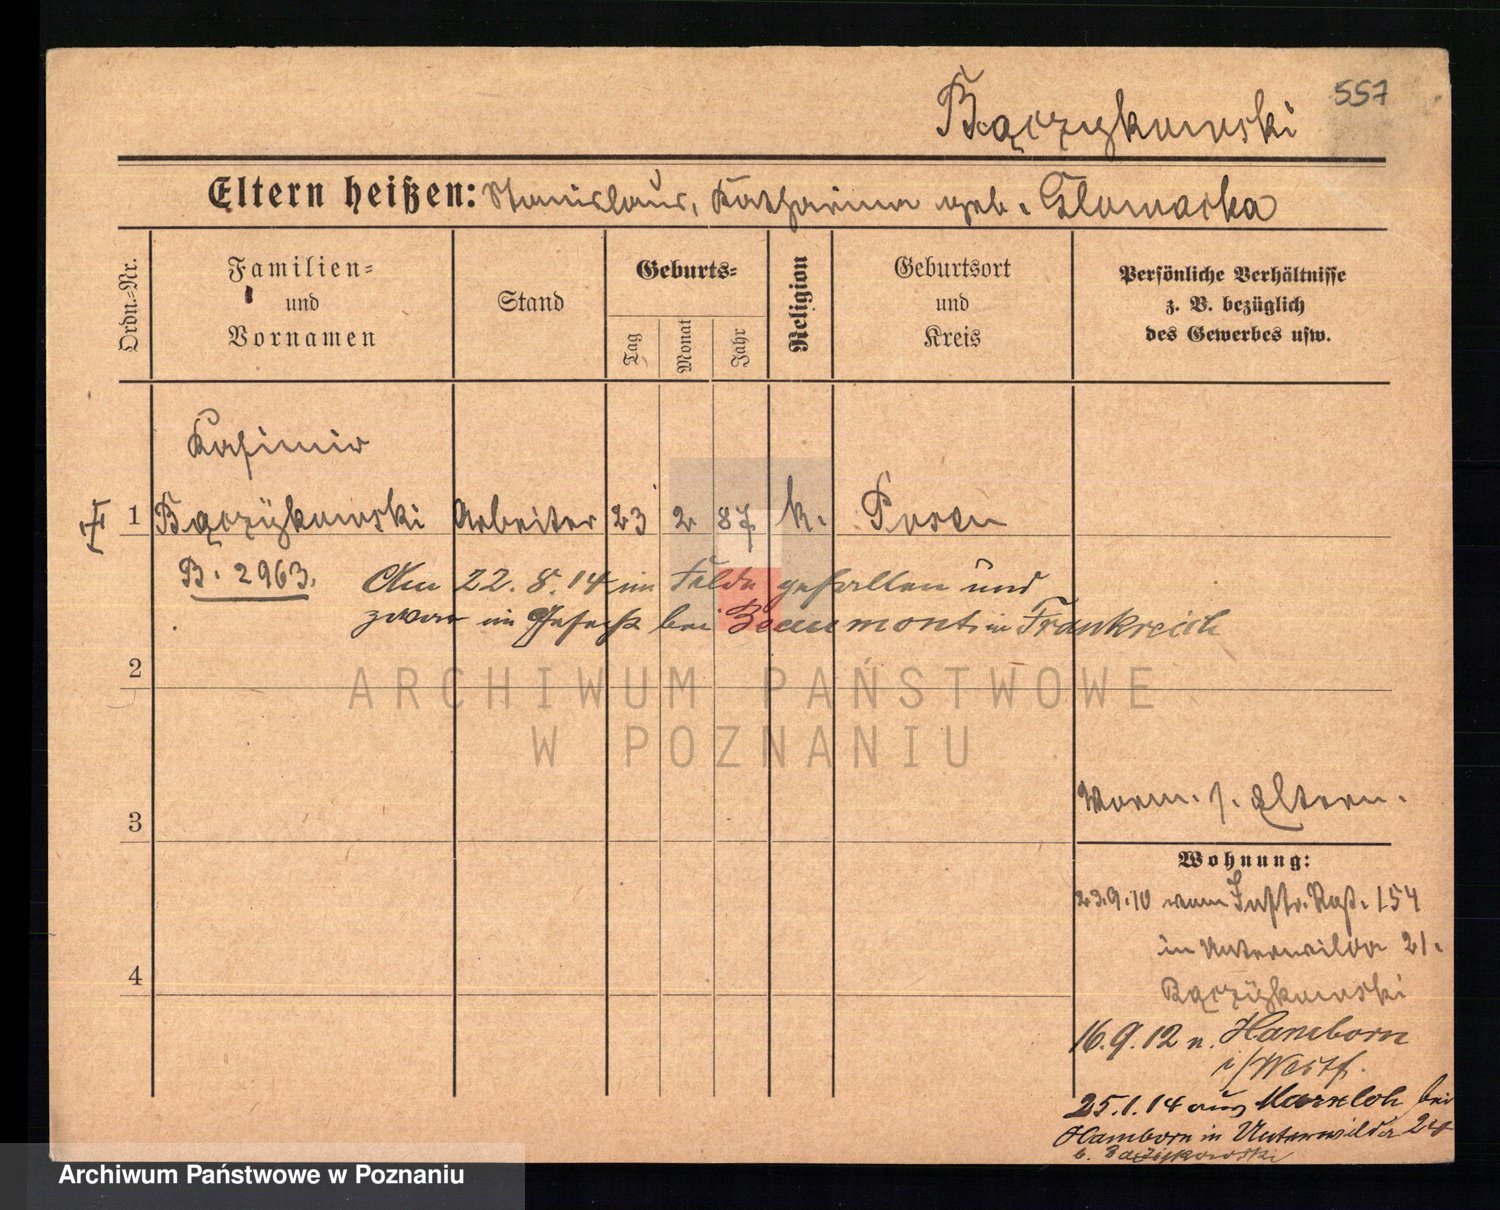 557
Bączykowski
Eltern heißen: Stanislaus, Katharina geb. Glowacka
Ordn.=Nr.
Familien=
und
Vornamen
Stand
Geburts=
Tag
Monat
Jahr
Religion
Geburtsort
und
Kreis
Persönliche Verhältnisse
z. B. bezüglich
des Gewerbes usw.
Kasimir
1 Bączykowski Arbeiter 23 2 87 k. Posen
B. 2963. Am 22.8.14 im Felde gefallen und
zwar im Gefecht bei Beaumont in Frankreich
2
ARCHIWUM PAŃSTWOWE
W POZNANIU
3
Vorm. s. Eltern.
Wohnung:
23.9.10 vom Inftr. Rgt. 154
in Unterwilda 21.
Bączykowski
4
16.9.12 n. Hamborn
i/Westf.
25.1.14 aus Marxloh bei
Hamborn in Unterwilda 24
b. Bączykowski
Archiwum Państwowe w Poznaniu